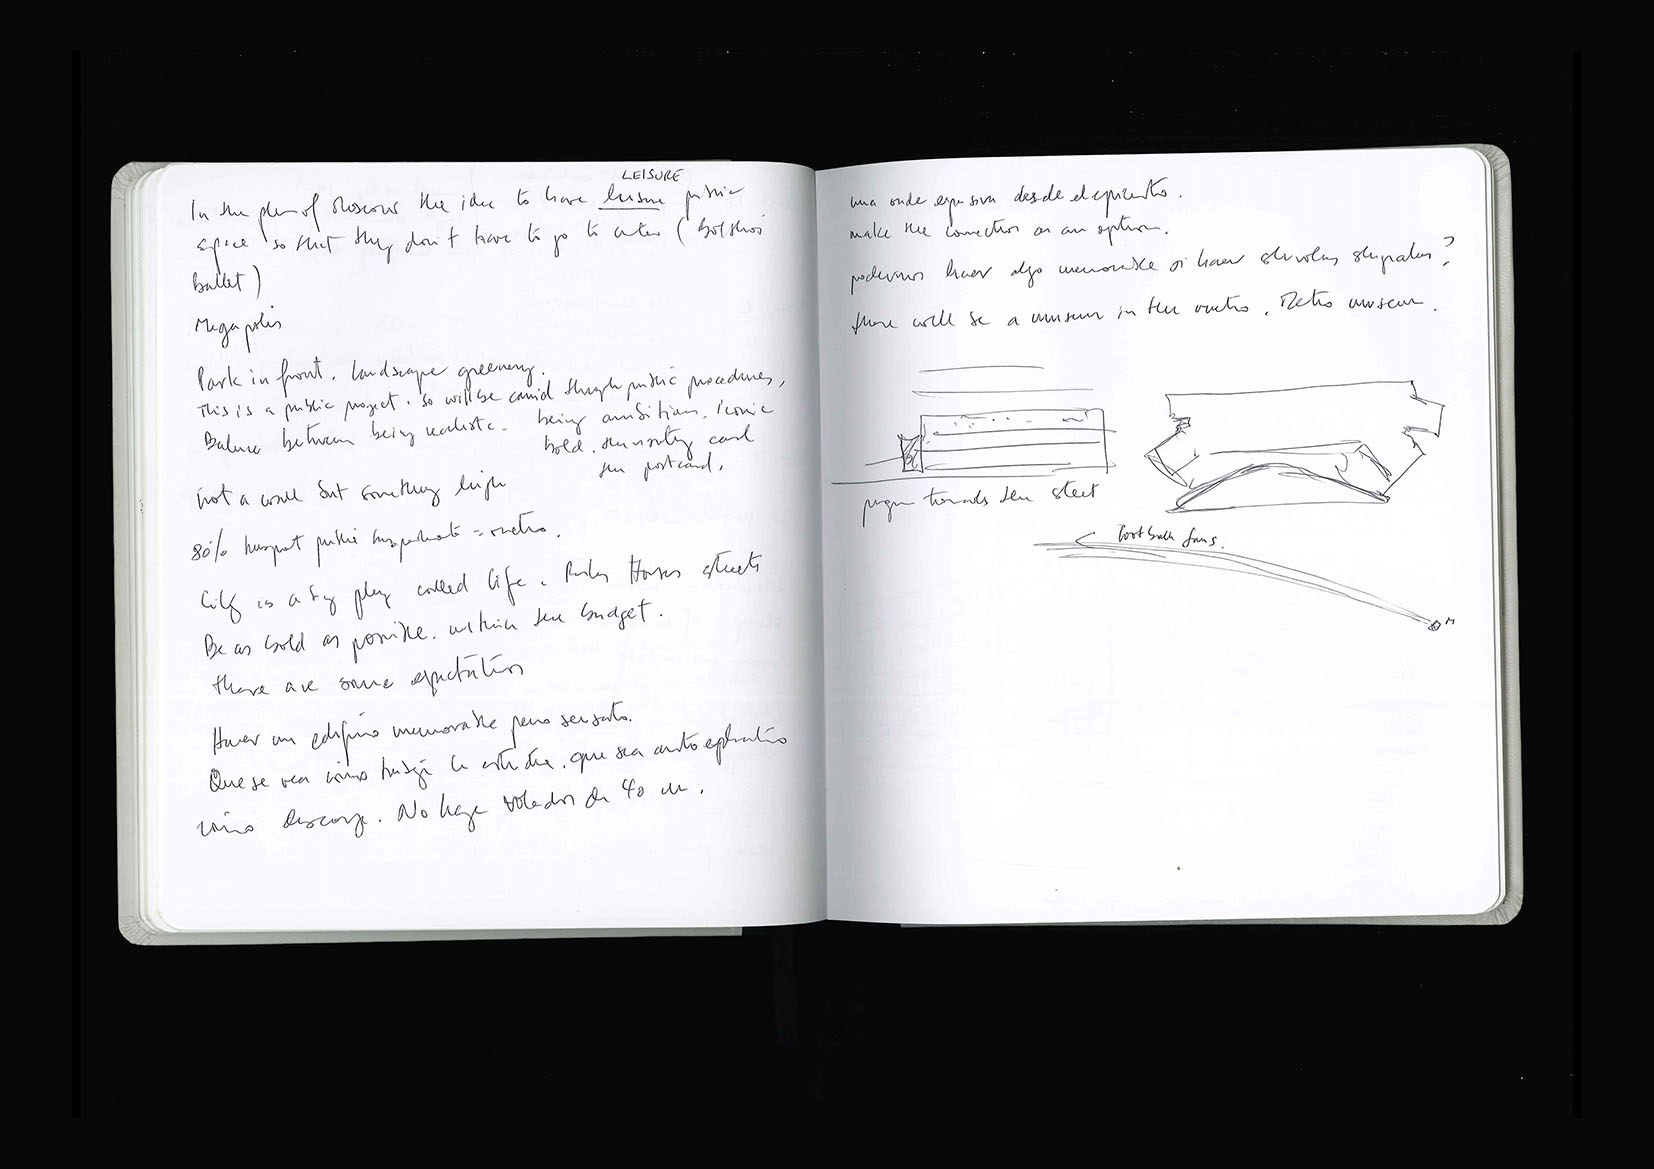 LEISURE
In the plan of Moscow the idea to have leisure public
space so that they don't have to go to center (Bolshoi
ballet)
Megapolis
Park in front. landscape greenery.
This is a public project. so will be carried through public procedures,
Balance between being realistic. being ambitious. iconic
bold. university card
postcard.
Not a wall but something high
80% transport public = metro.
City is a big play called life. Houses streets
Be as bold as possible. within the budget.
there are some expectation
Hacer un edificio memorable pero sensato.
Que se vea cómo trabaja la. que sea auto explicativo
cómo descarga. No haga voladas de 40 m.
una onda expansiva desde el epicentro.
make the connection as an option.
podemos hacer algo memorable si hacer?
there will be a museum in the metro. Metro museum.
towards the street
football fans.
M